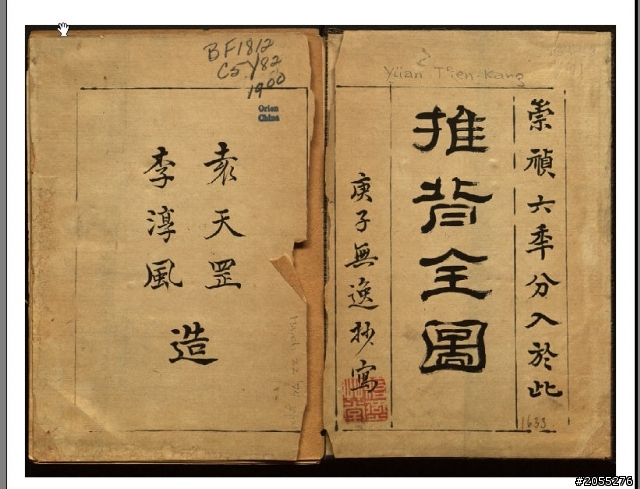 BF1812
C5Y82
1900
Orien
China
Yüan T'ien-Kang
崇禎六年分入於此
1633
推背全圖
庚子無逸抄寫
袁天罡
李淳風
造
#2055276